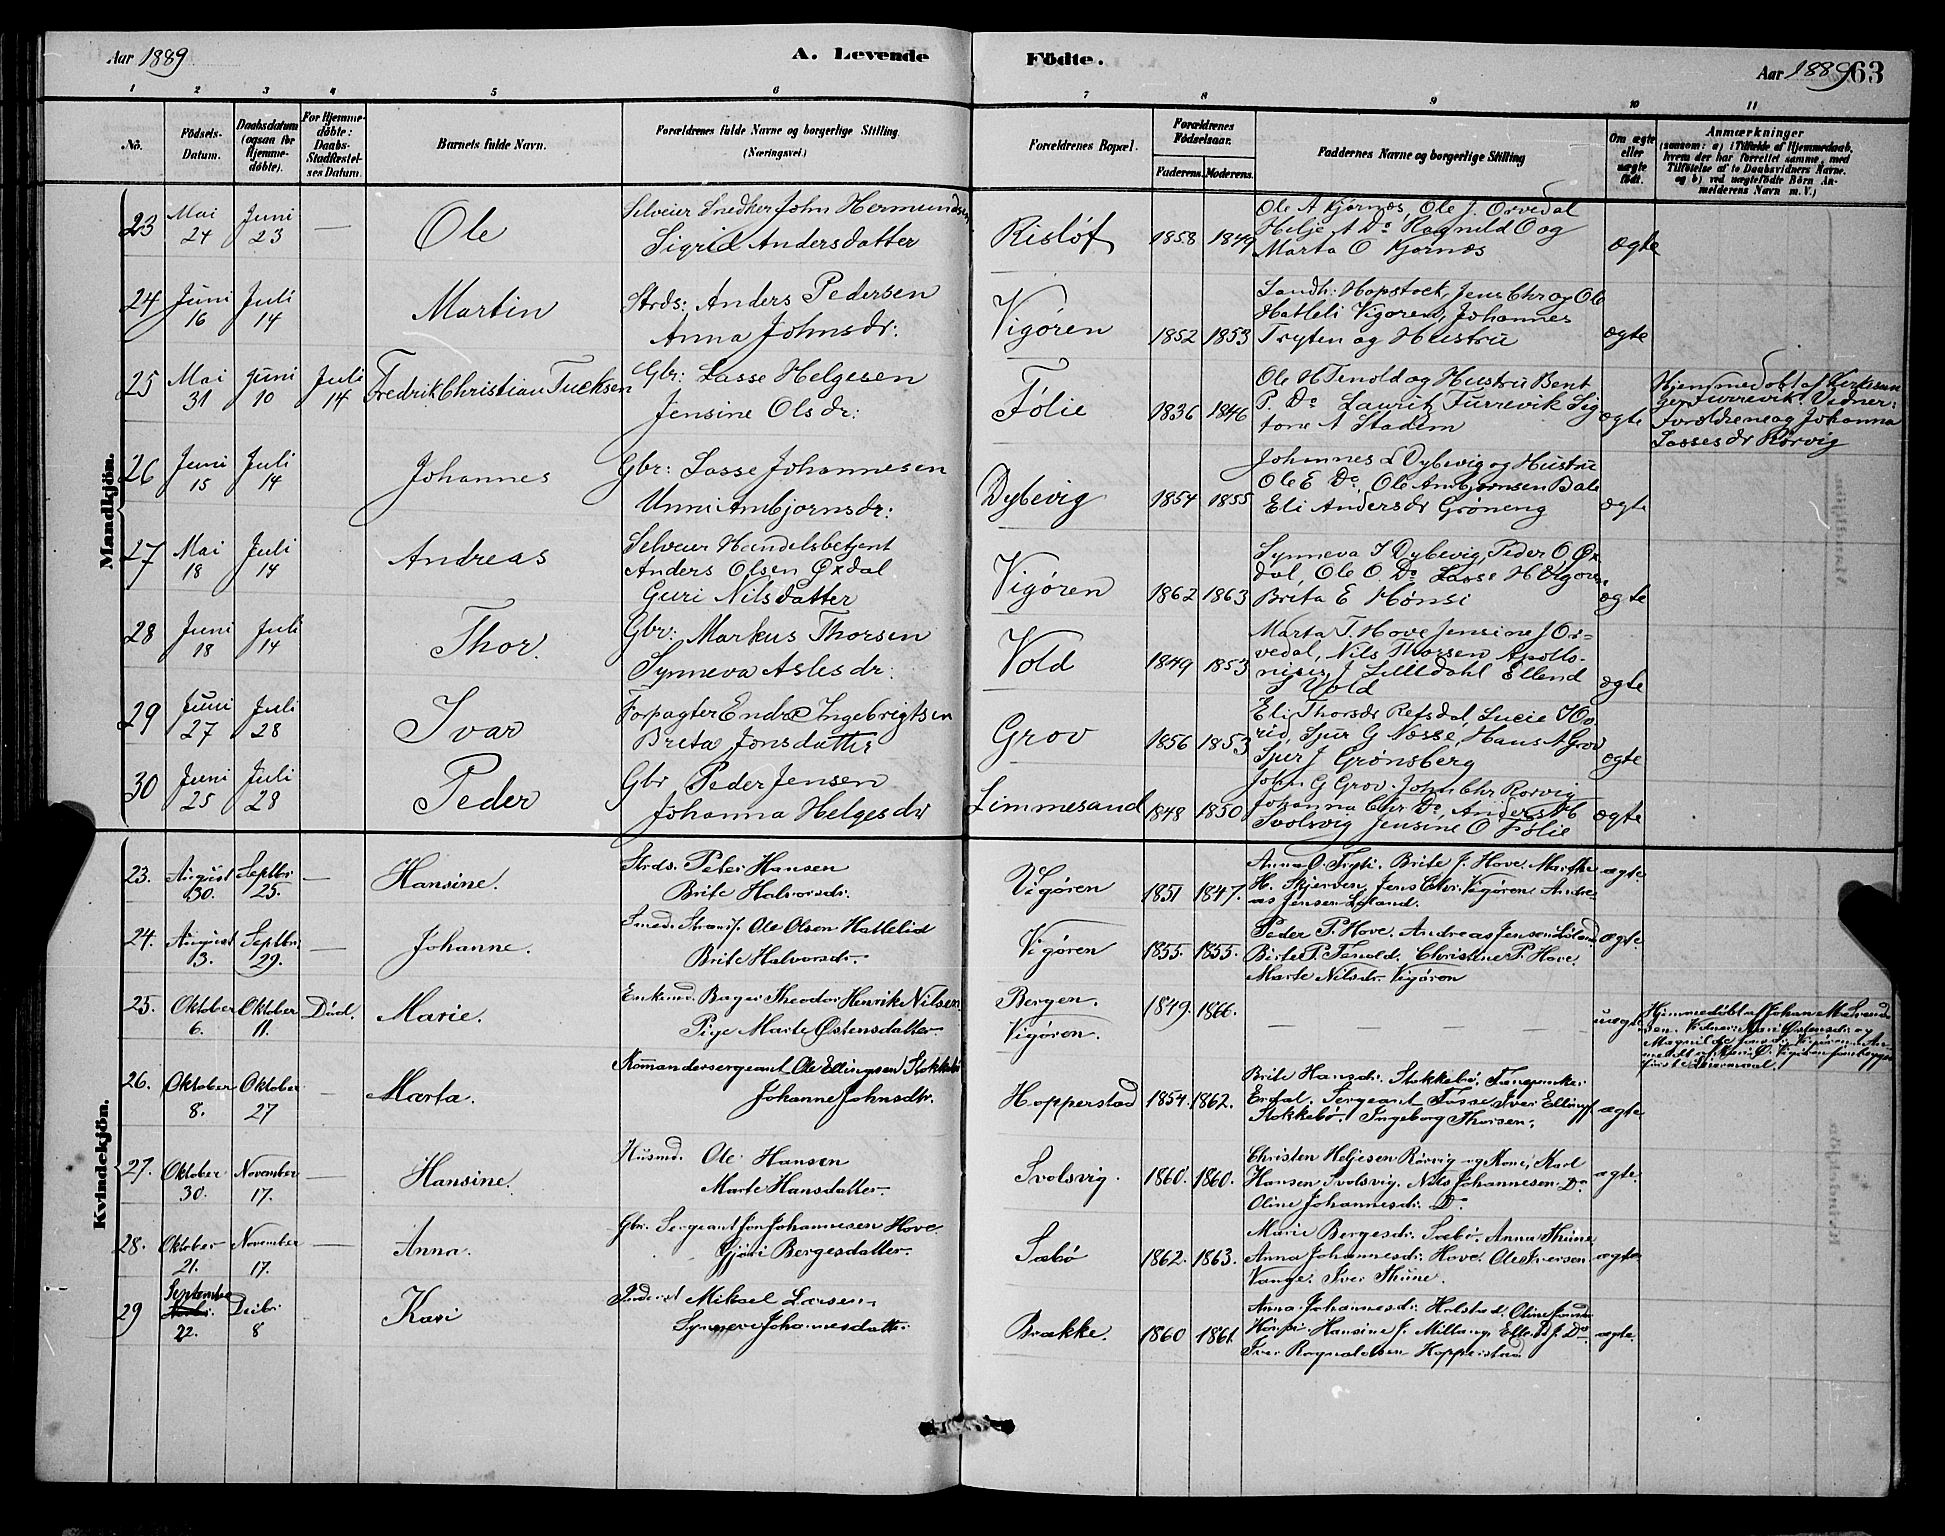 Aar 1889 A. Levende Födte. Aar 1889 63
1 2 3 4 5 6 7 8 9 10 11
No. Födsels-Datum. Daabsdatum (ogsaa for Hjemme-döbte). For Hjemme-döbte: Daabs-Stadfæstel-ses Datum. Barnets fulde Navn. Forældrenes fulde Navne og borgerlige Stilling. (Næringsvei.) Forældrenes Bopæl. Forældrenes Födselsaar. Faderens. Moderens. Faddernes Navne og borgerlige Stilling Om ægte eller uægte födt. Anmærkninger (saasom: a) i Tilfælde af Hjemmedaab, hvem der har forrettet samme, med Tilföielse af to Daabsvidners Navne. og b) ved uægtefödte Börn An-melderens Navn m. V.)
Mandkjön.
23 Mai 24 Juni 23 — Ole Selveier Snedker John Hermundsen
Sigrid Andersdatter Risløf 1858 1849 Ole A Kjørnæs, Ole J. Orvedal
Helje A Do Ragnild O og
Marta O Kjørnæs ægte
24 Juni 16 Juli 14 Martin Strds: Anders Pedersen
Anna Johnsdr: Vigøren 1852 1853 Landh: Hopstock, Jens Chr og Ole
Hatleli Vigøren, Johannes
Tryten og Hustru ægte
25 Mai 31 Juni 10 Juli 14 Fredrik Christian Tucksen Gbr: Lasse Helgesen
Jensine Olsdr: Følie 1836 1846 Ole H Tenold og Hustru Bent
P. Do Laurits Furrevik Sig
tone A Stadem ægte Hjemmedøbt af Kirkesan
ger Furrevik. Vidner:
Forældrene og Johanna
Lassesdr Rørvig
26 Juni 15 Juli 14 Johannes Gbr: Lasse Johannesen
Unni Ambjørnsdr: Dybevig 1854 1855 Johannes L Dybevig og Hustru
Ole E Do, Ole Ambjørnsen Bale
Eli Andersdr Grøneng ægte
27 Mai 18 Juli 14 Andreas Selveier Handelsbetjent
Anders Olsen Øxdal
Guri Nilsdatter Vigøren 1862 1863 Synneva I Dybevig, Peder O Øx
dal, Ole O. Do Lasse H Vigøren
Brita E Hønsi ægte
28 Juni 18 Juli 14 Thor. Gbr: Markus Thorsen
Synneva Aslesdr: Vold 1849 1853 Marta T. Hove Jensine J Or=
vedal, Nils Thorsen Apollo-
J Lilledahl Ellend
S Vold ægte
29 Juni 27 Juli 28 Ivar Forpagter Endre Ingebrigtsen
Brita Jonsdatter Grov 1856 1853 Eli Thorsdr Refsdal, Lucie
Sjur G Nesse, Hans A Grov
Sjur J Grønsberg ægte
30 Juni 25 Juli 28 Peder Gbr Peder Jensen
Johanna Helgesdr Limmesand 1848 1850 John G Grov. John Chr Rørvig
Johanna Chr Do, Anders
Svolsvig Jensine O Følie ægte
Kvindekjön.
23. August 30. Septbr 25. — Hansine. Strds. Peter Hansen
Brite Halvorsdr. Vigøren 1851 1847. Anna O. Tryti. Brite J. Hove. Marthe
H. Skjerven, Jens Chr. Vigøren, Andre-
as Jensen Løland. ægte.
24. August 13. Septbr. 29. — Johanne. Smed. Strans. Ole Olsen Hatlelid
Brite Halvorsdr. Vigøren 1855. 1855. Peder P. Hove. Andreas Jensen Løland
Birte P. Tenold, Christine P. Hove.
Marte Nilsdr. Vigøren ægte.
25. Oktober 6. Oktober 11. Död. Marie. Enkemd. Bager Theodor Henrik Nilsen.
Pige Marte Østensdatter. Bergen.
Vigøren. 1849. 1866. — uægte Hjemmedøbt af Johan M Svend
sen. Vidner: Mari Østensdr. og
Magnilde Vigøren
26. Oktober 8. Oktober 27 — Marta. Kommandersergeant Ole Ellingsen Stokkebø
Johanne Johnsdtr. Hopperstad 1854. 1862. Brite Hansdr. Stokkebø.
Erdal. Sergeant Tosse, Iver Ellings
Stokkebø. Ingeborg Thorsen. ægte.
27. Oktober 30. November 17. — Hansine. Husmd. Ole Hansen
Marte Hansdatter. Svolsvig. 1860. 1860. Christen Heljesen Rørvig og Kone, Karl
Hansen Svolsvig. Nils Johannesen Do
Oline Johannesdr. Do ægte.
28. Oktober 21. November 17. — Anna. Gbr. Sergeant Jon Johannesen Hove.
Gjøri Bergesdatter. Sæbø 1862. 1863. Marie Bergesdr. Sæbø. Anna Thüne
Anna Johannesdr. Hove. Ole Iversen
Vange. Iver Thüne. ægte.
29 September 22. Decbr 8 Kari Mikael Larsen.
Synneve Johannesdatter. Brække. 1860 1861. Anna Johannesdr. Halstad. Oline
Hansine J. Millang, Do
Iver Rognaldsen Hopperstad ægte.